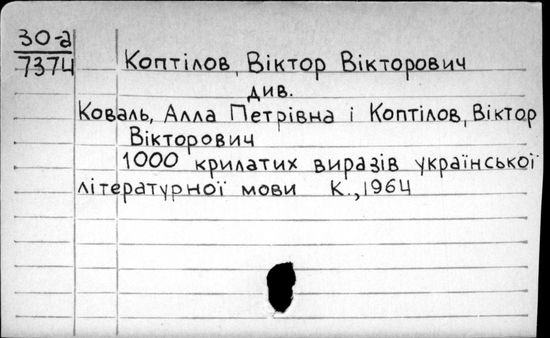 30-а
7374
Коптілов, Віктор Вікторович
див.
Коваль, Алла Петрівна і Коптілов, Віктор
Вікторович
1000 крилатих виразів української
літературної мови К., 1964